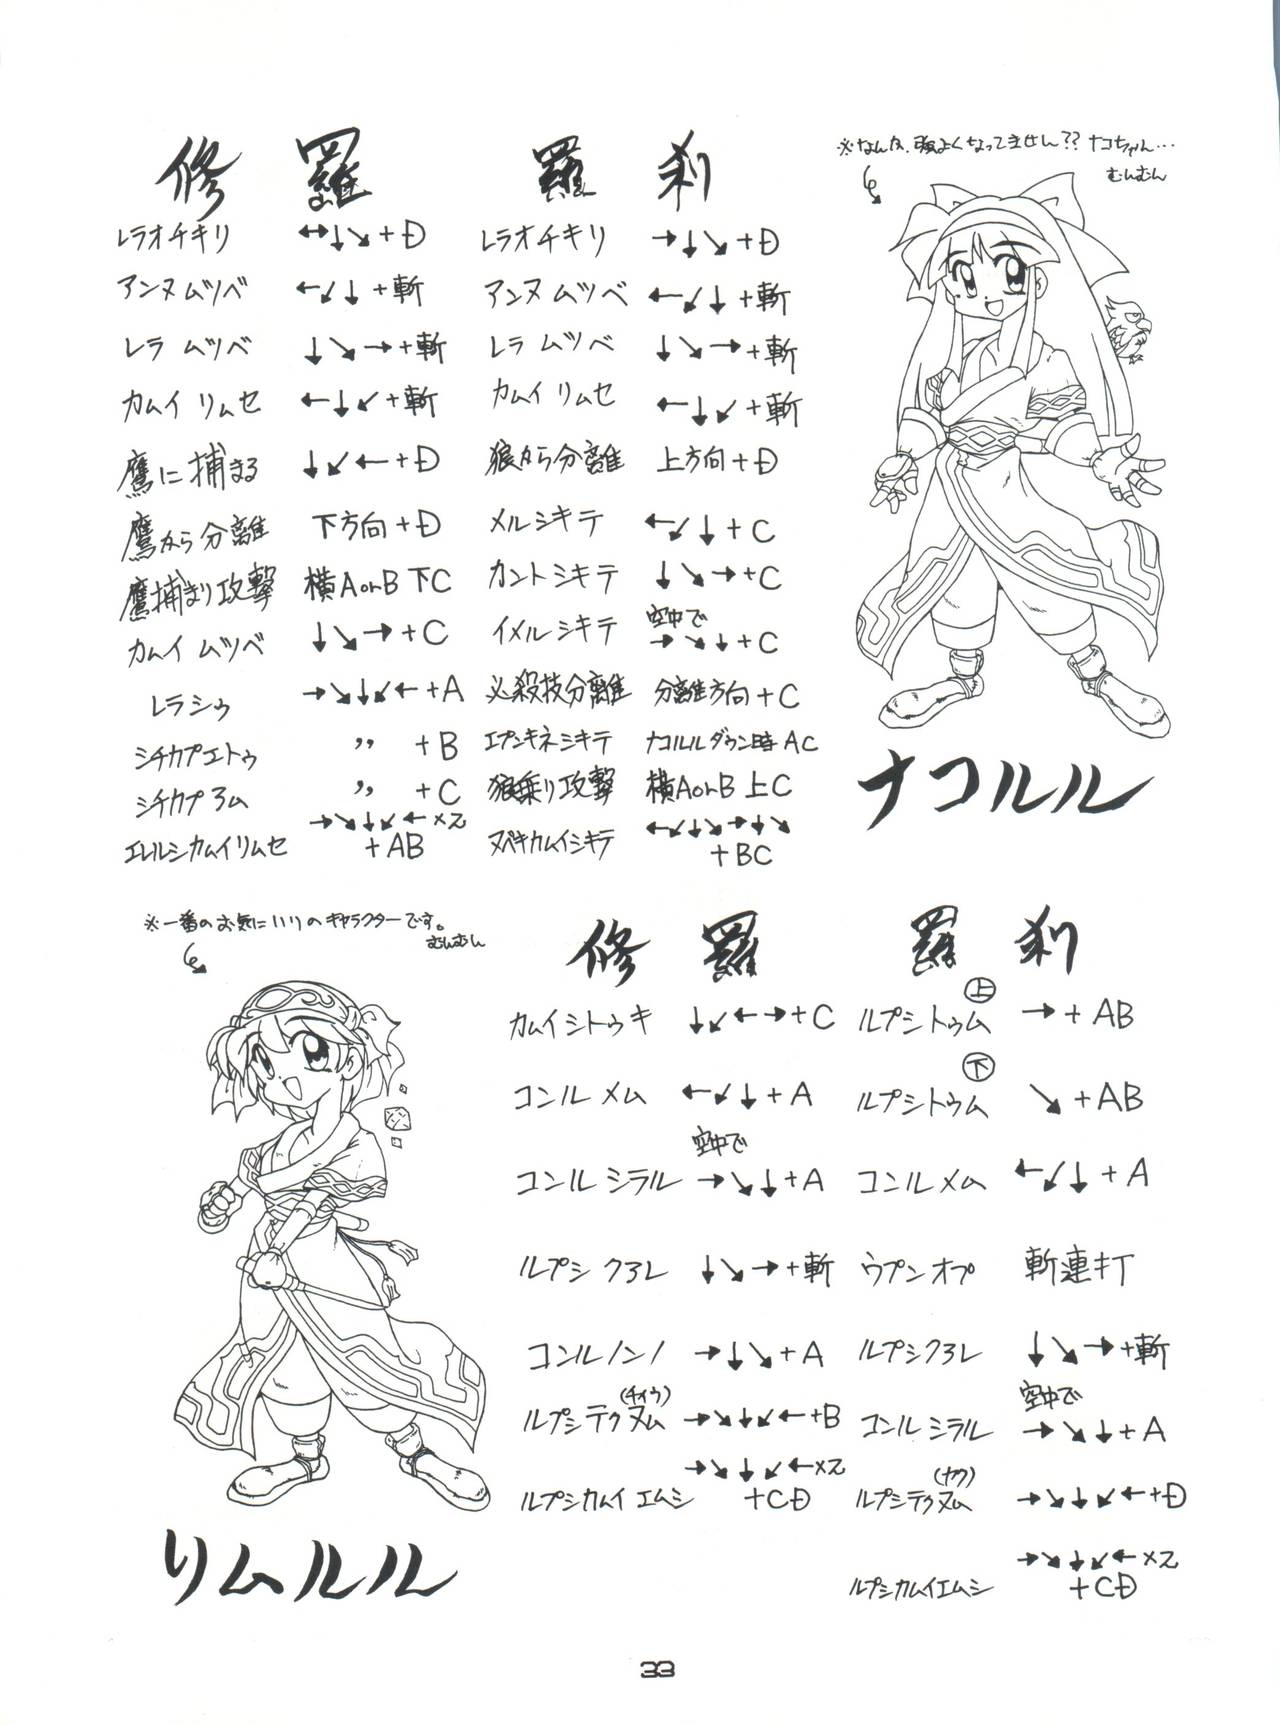 修羅 羅刹
レラオチキリ ↔↓↘+D レラオチキリ →↓↘+D
アンヌムツベ ←↙↓+斬 アンヌムツベ ←↙↓+斬
レラ ムツベ ↓↘→+斬 レラ ムツベ ↓↘→+斬
カムイ リムセ ←↓↙+斬 カムイ リムセ ←↓↙+斬
鷹に捕まる ↓↙←+D 狼から分離 上方向+D
鷹から分離 下方向+D メルシキテ ←↙↓+C
鷹捕まり攻撃 横AorB 下C カントシキテ ↓↘→+C
カムイ ムツベ ↓↘→+C イメルシキテ 空中で →↘↓+C
レラシゥ →↘↓↙←+A 必殺技分離 分離方向+C
シチカプエトゥ 〃 +B エプンキネシキテ ナコルルダウン時AC
シチカプヨム 〃 +C 狼乗り攻撃 横AorB 上C
エレルシカムイリムセ →↘↓↙←×2 +AB ヌペキカムイシキテ ←↙↓↘→↓↘ +BC
※なんか、強よくなってません?? ナコちゃん…
むんむん
ナコルル
※一番のお気にいりのキャラクターです。
むんむん
リムルル
修羅 羅刹
カムイシトゥキ ↓↙←→+C ルプシトゥム 上 →+AB
コンルメム ←↙↓+A ルプシトゥム 下 ↘+AB
コンル シラル 空中で →↘↓+A コンルメム ←↙↓+A
ルプシ クヨレ ↓↘→+斬 ウプンオプ 斬連打
コンルノンノ →↓↘+A ルプシクヨレ ↓↘→+斬
ルプシテクヌム (チイウ) →↘↓↙←+B コンル シラル 空中で →↘↓+A
ルプシカムイエムシ →↘↓↙←×2 +CD ルプシテクヌム (ナウ) →↘↓↙←+D
ルプシカムイエムシ →↘↓↙←×2 +CD
33